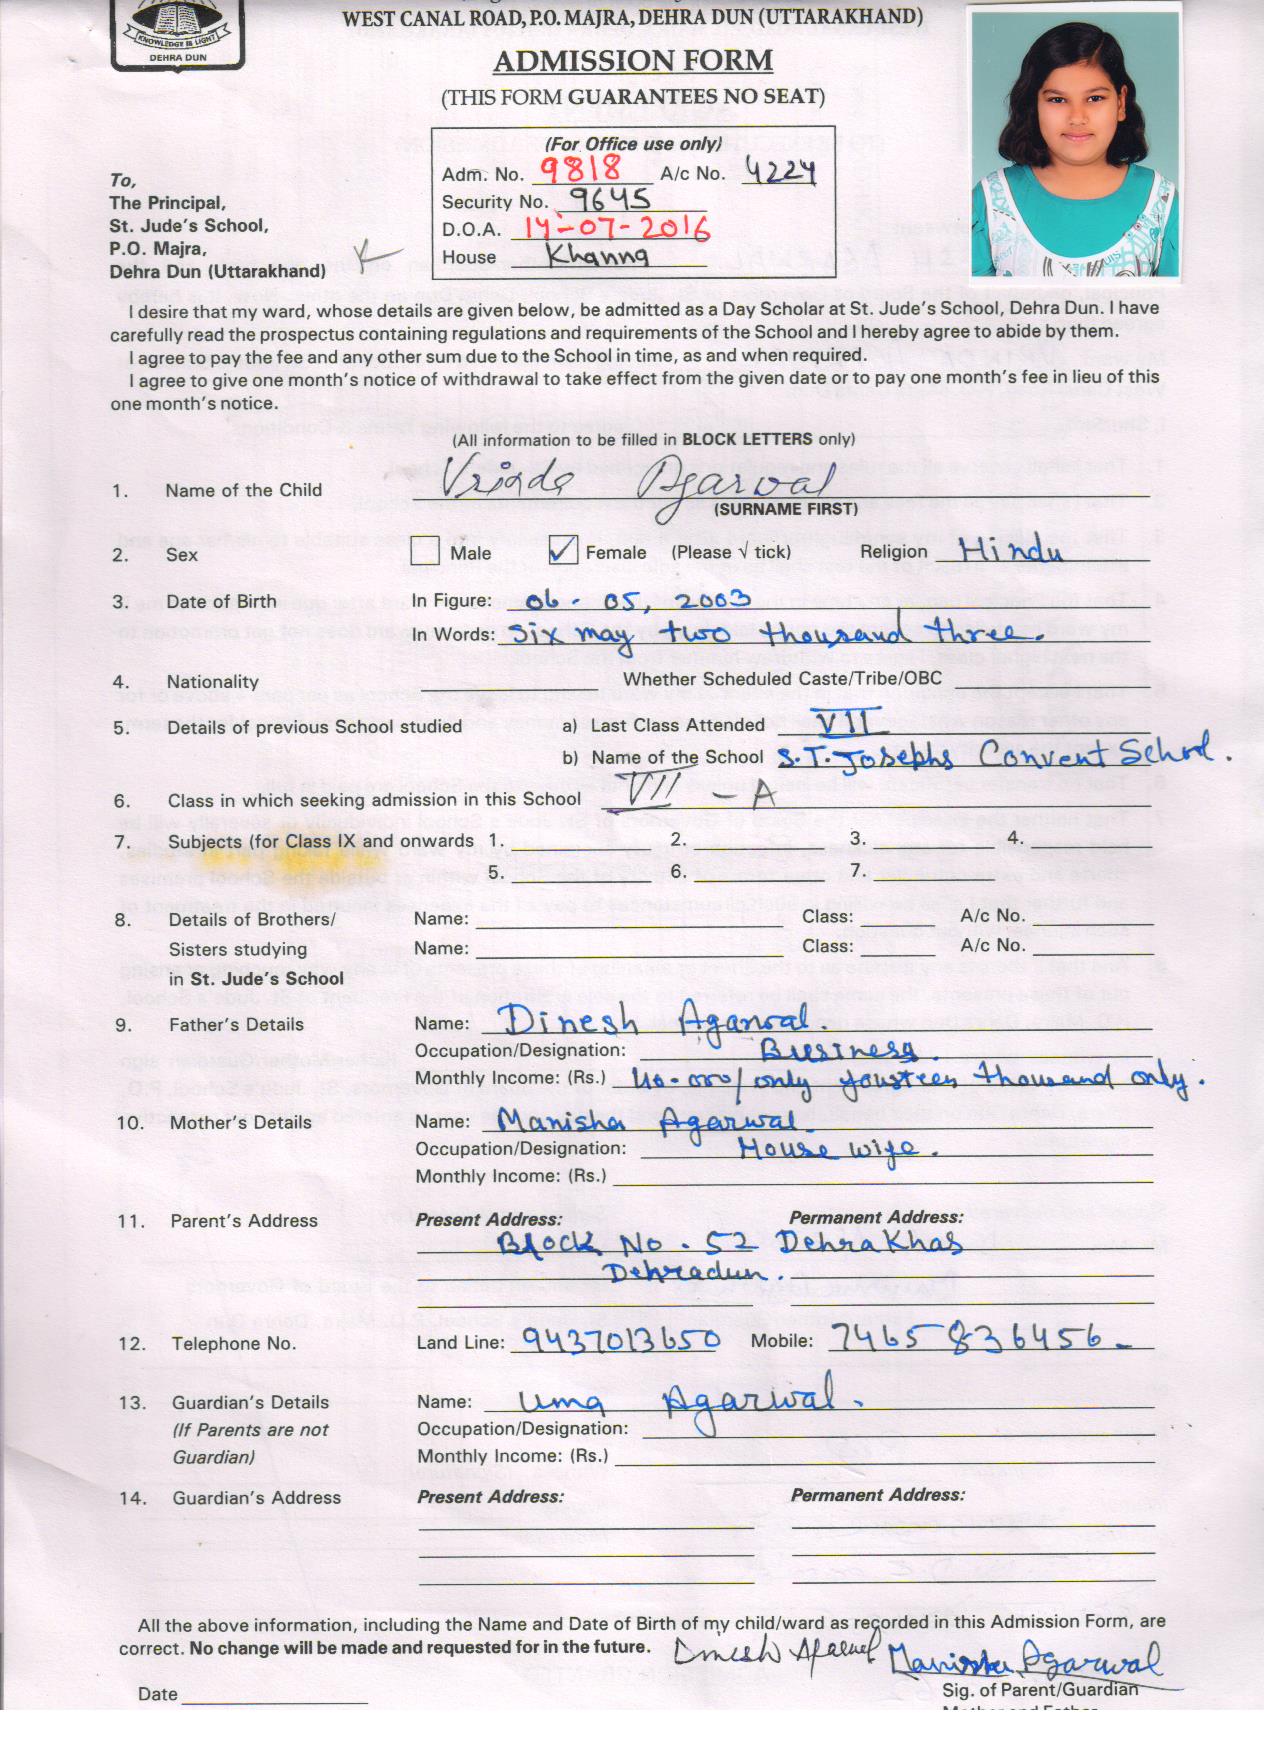 WEST CANAL ROAD, P.O. MAJRA, DEHRA DUN (UTTARAKHAND)
KNOWLEDGE IS LIGHT
DEHRA DUN
ADMISSION FORM
(THIS FORM GUARANTEES NO SEAT)
(For Office use only)
Adm. No. 9818 A/c No. 4224
Security No. 9645
D.O.A. 14-07-2016
House Khanna
To,
The Principal,
St. Jude's School,
P.O. Majra,
Dehra Dun (Uttarakhand)
I desire that my ward, whose details are given below, be admitted as a Day Scholar at St. Jude's School, Dehra Dun. I have
carefully read the prospectus containing regulations and requirements of the School and I hereby agree to abide by them.
I agree to pay the fee and any other sum due to the School in time, as and when required.
I agree to give one month's notice of withdrawal to take effect from the given date or to pay one month's fee in lieu of this
one month's notice.
(All information to be filled in BLOCK LETTERS only)
1. Name of the Child Vrinda Agarwal
(SURNAME FIRST)
2. Sex Male ✓ Female (Please √ tick) Religion Hindu
3. Date of Birth In Figure: 06 - 05, 2003
In Words: Six may two thousand three.
4. Nationality Whether Scheduled Caste/Tribe/OBC
5. Details of previous School studied a) Last Class Attended VII
b) Name of the School S.T. Josephs Convent School.
6. Class in which seeking admission in this School VII - A
7. Subjects (for Class IX and onwards 1. 2. 3. 4.
5. 6. 7.
8. Details of Brothers/ Name: Class: A/c No.
Sisters studying Name: Class: A/c No.
in St. Jude's School
9. Father's Details Name: Dinesh Agarwal.
Occupation/Designation: Business.
Monthly Income: (Rs.) 40-000/ only fourteen thousand only.
10. Mother's Details Name: Manisha Agarwal.
Occupation/Designation: House wife.
Monthly Income: (Rs.)
11. Parent's Address Present Address: Permanent Address:
Block No. 52 Dehra Khas
Dehradun.
12. Telephone No. Land Line: 9437013650 Mobile: 7465836456
13. Guardian's Details Name: Uma Agarwal.
(If Parents are not Occupation/Designation:
Guardian) Monthly Income: (Rs.)
14. Guardian's Address Present Address: Permanent Address:
All the above information, including the Name and Date of Birth of my child/ward as recorded in this Admission Form, are
correct. No change will be made and requested for in the future. Dinesh Agarwal Manisha Agarwal
Date Sig. of Parent/Guardian